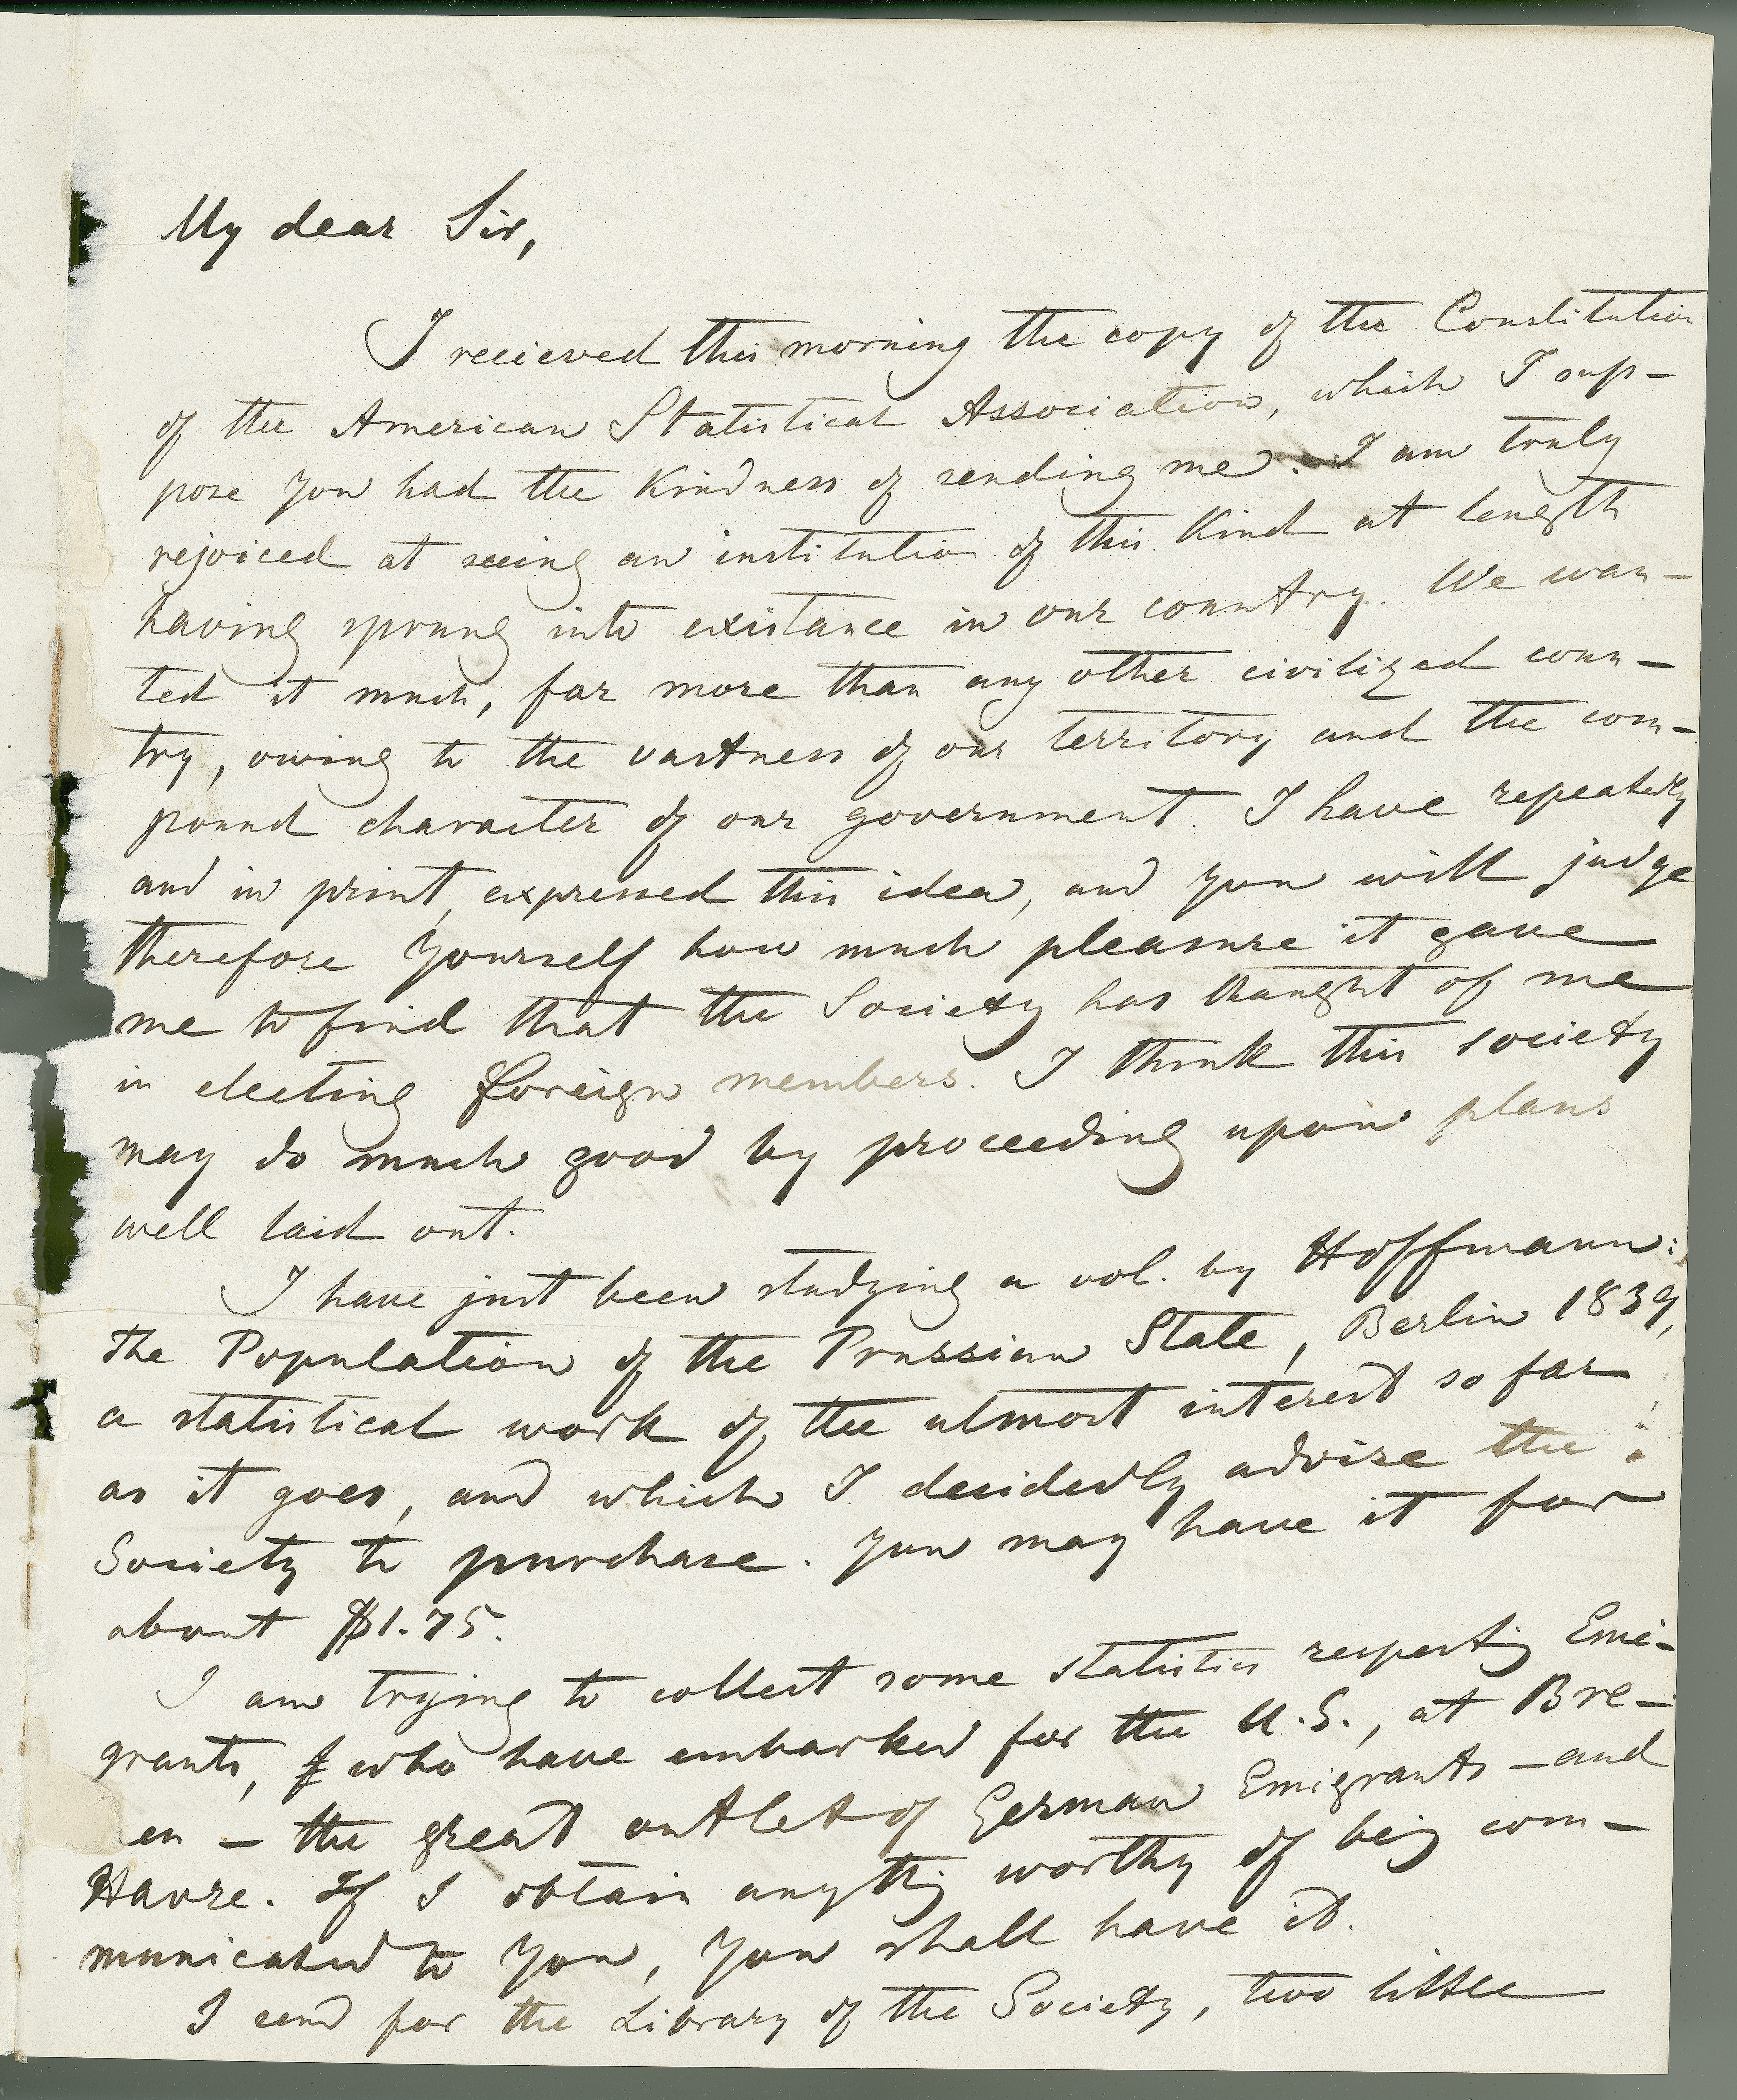 My dear Sir,
I recieved this morning the copy of the Constitution
of the American Statistical Association, which I sup-
pose you had the Kindness of sending me. I am truly
rejoiced at seeing an institution of this Kind at length
having sprung into existance in our country. We wan-
ted it much, far more than any other civilized coun-
try, owing to the vastness of our territory and the com-
pound character of our government. I have repeatedly
and in print, expressed this idea, and you will judge
therefore yourself how much pleasure it gave
me to find that the Society has thought of me
in electing foreign members. I think this society
may do much good by proceeding upon plans
well laid out.
I have just been studying a vol. by Hoffmann:
The Population of the Prussian State, Berlin 1839,
a statistical work of the utmost interest so far
as it goes, and which I decidedly advise the
Society to purchase. You may have it for
about $1.75.
I am trying to collect some statistics respectig Emi-
grants, who have embarked for the U.S., at Bre-
en – the great outlet of German Emigrants – and
Havre. If I obtain anythig worthy of beig com-
municated to you, you shall have it.
I send for the Library of the Society, two little